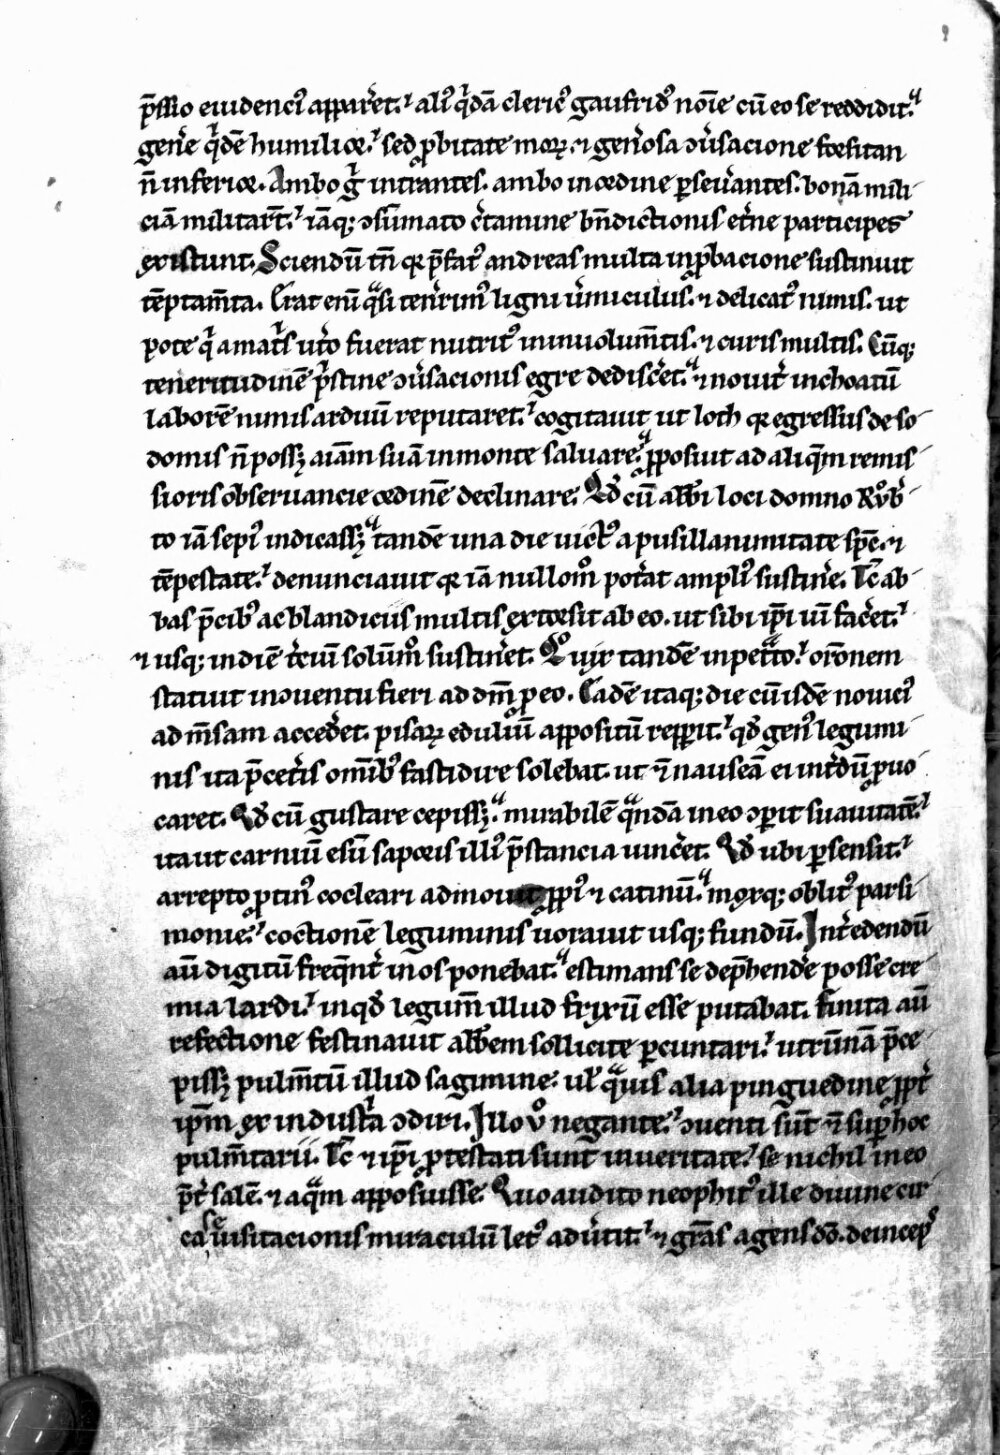 p̄ssio euidenci᷒ apparet. ali᷒ qͥdā cleric᷒ gaufrid᷒ noīe cū eo se reddidit.
genere qͥdē humilior. sed ꝓbitate moꝝ. ⁊ generosa ↄuersacione forsitan
n̄ inferior. Ambo gͥ intrantes. ambo in ordine ꝑseuerantes. bonam mili-
ciā militarūt. iāqꝫ ↄsūmato certamine bn̄dictionis et̄ne participes
existunt. Sciendū tn̄ qr p̄fat᷒ andreas multa in ꝓbacione sustinuit
tēptam̄ta. Erat enī qͣsi tenerrim᷒ ligni vermiculus. ⁊ delicat᷒ nimis. ut
pote qͥ a matris utero fuerat nutrit᷒ in inuolum̄tis. ⁊ curis multis. Cūqꝫ
teneritudinē pͥstine ↄuersacionis egre dedisceret. ⁊ nouiter inchoatū
laborē nimis arduū reputaret. cogitauit ut loth qr egressus de so-
domis n̄ possꝫ aīam suā in monte saluare. ꝓposuit ad aliqͣm remis-
sioris obseruancie ordinē declinare. Qd̄ cū abbi loci domno Rob̄-
to iā sepi᷒ indicassꝫ tandē una die uict᷒ a pusillanimitate spc̄. ⁊
tēpestate. denunciauit qr iā nullo mͦ poterat ampli᷒ sustinere. Tc̄ ab-
bas p̄cib᷒ ac blandiciis multis extorsit ab eo. ut sibi ip̄i uim faceret.
⁊ usqꝫ in diē terciū solūmͦ sustineret. Quo uix tandē inpetrato. oronem
statuit in ↄuentu fieri ad dm̄ ꝓ eo. Eadē itaqꝫ die cū isdē nouici᷒
ad m̄sam accederet. pisaꝝ eduliū appositū repperit. qd̄ gen᷒ legumi-
nis ita p̄ceteris omīb᷒ fastidire solebat. ut ⁊ nauseā ei interdū ꝓuo-
caret. Qd̄ cū gustare cepissꝫ. mirabilē qͣndā in eo ↄperit suauitatē.
ita ut carniū esū saporis illi᷒ p̄stancia uinceret. Qd̄ ubi ꝑsensit.
arrepto ꝓtin᷒ cocleari admouit ꝓpi᷒ ⁊ catinū. moxqꝫ oblit᷒ parsi-
monie. coctionē leguminis uorauit usqꝫ fundū. Inter edendū
aū digitū freqn̄ter in os ponebat. estimans se dep̄hendere posse cre-
mia lardi. in qd̄ legum̄ illud frixū esse putabat. Finita aū
refectione festinauit abbem sollicite ꝑcuntari. utrūnā p̄ce-
pissꝫ pulm̄tū illud sagimine. ul̓ qͣuis alia pinguedine ꝓpter
ip̄m ex industͥa ↄdiri. Illo vͦ negante. ↄuenti sūt ⁊ suꝑ hoc
pulm̄tarii. Tc̄ ⁊ ip̄i ꝓtestati sunt in ueritate. se nichil in eo
p̄ter salē. ⁊ aqͣm apposuisse. Quo audito neophit᷒ ille diuine cir-
ca se uisitacionis miraculū let᷒ aduertit. ⁊ gr̄as agens do. deincep᷒